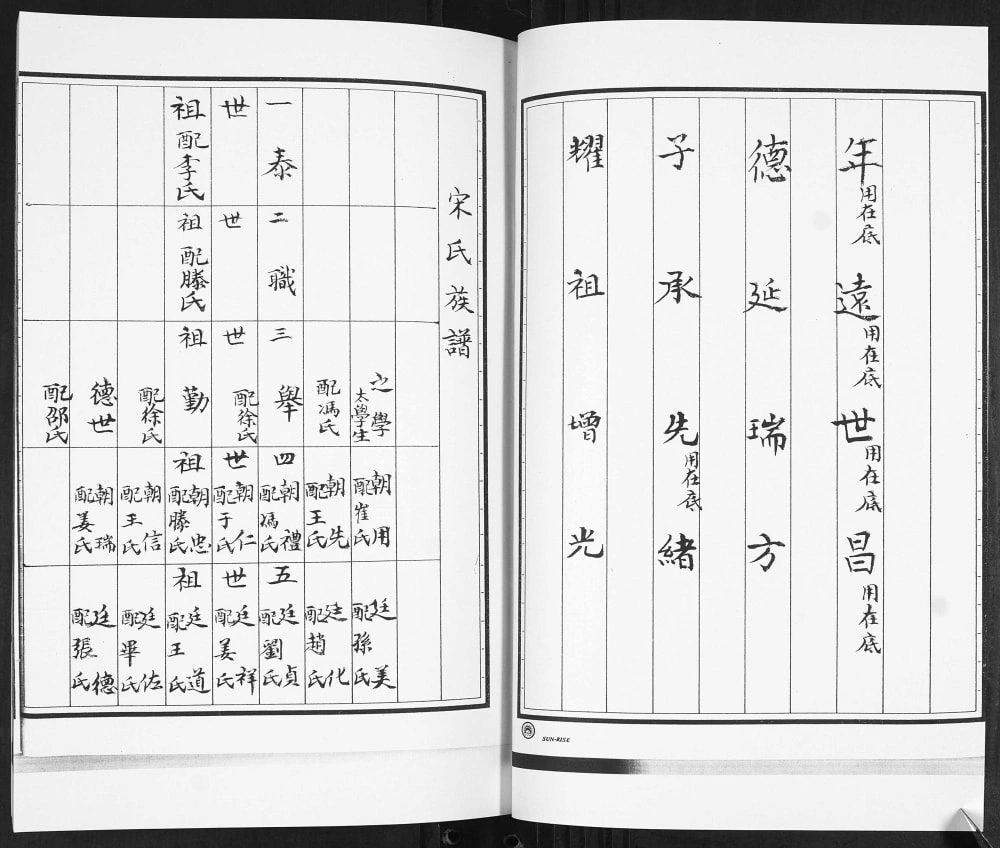 年用在底遠用在底世用在底昌用在底
德延瑞方
子承先用在底緒
耀祖增光
SUN-RISE
宋氏族譜
一世祖
泰
配李氏
二世祖
職
配滕氏
三世祖
之學
太學生
配馮氏
舉
配徐氏
勤
配徐氏
德世
配邵氏
四世祖
朝用
配崔氏
朝先
配王氏
朝禮
配馮氏
朝仁
配于氏
朝忠
配滕氏
朝信
配王氏
朝瑞
配姜氏
五世祖
廷美
配孫氏
廷化
配趙氏
廷貞
配劉氏
廷祥
配姜氏
廷道
配王氏
廷佐
配畢氏
廷德
配張氏